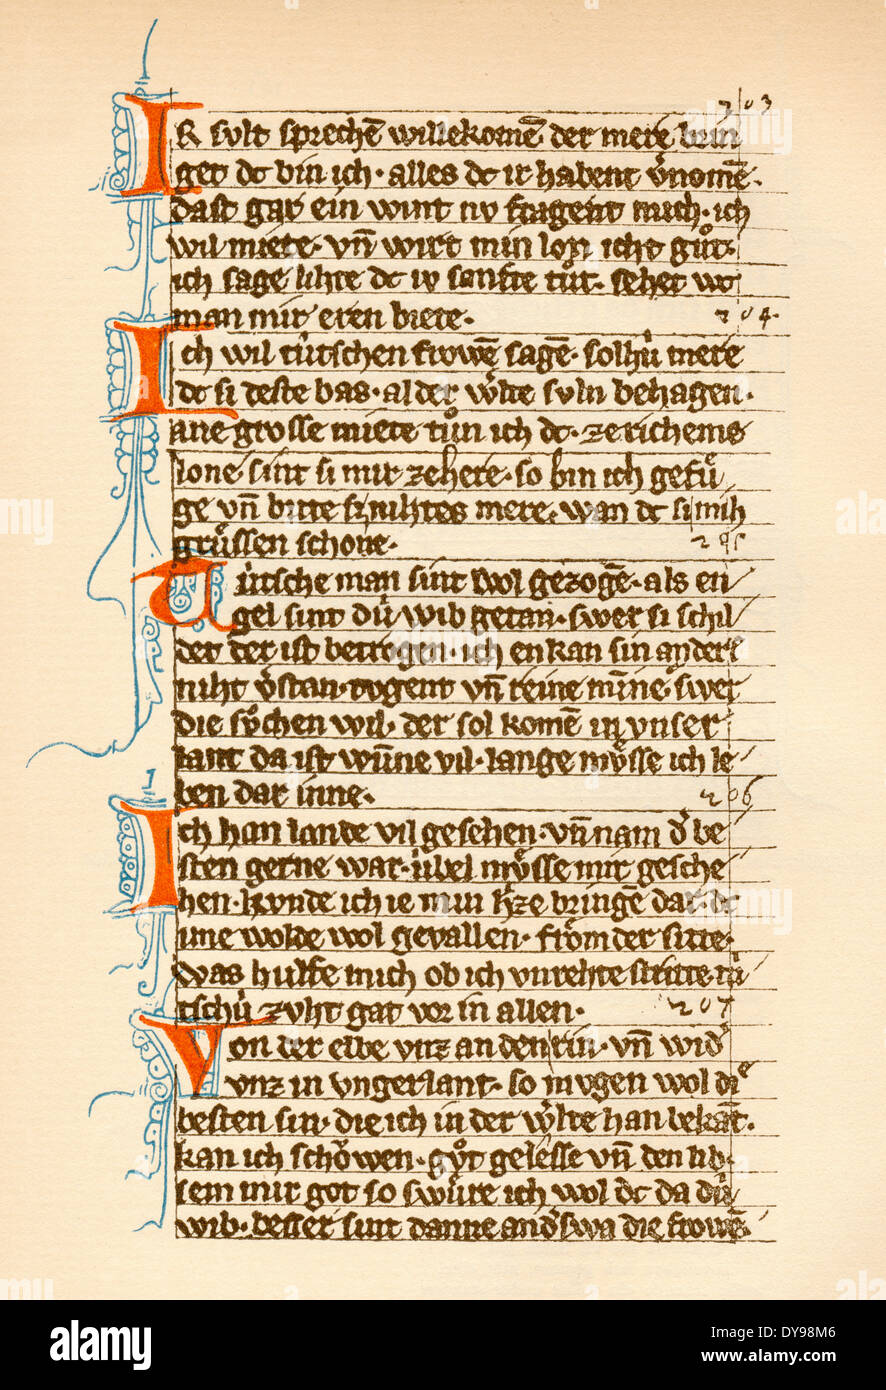 203
IR svlt sprechē willekomē der mere brin
get dc bin ich · alles dc ir habent v̾nomē ·
dast gar ein wint nv fragent mich · ich
wil miete · vñ wirt min lon icht gůt ·
ich sage lihte dc iv sanfte tůt · sehet wc
man mir eren biete ·
204 ·
Ich wil tútschen frowē sagē · solhú mere
dc si deste bas · al der w̾lte svln behagen ·
ane grosse miete tůn ich dc · ze richeme
lone sint si mir ze here · so bin ich gefůͤ
ge vñ bitte si nihtes mere · wan dc si mih
grůssen schone ·
205
Tútsche man sint wol gezogē · als en
gel sint dú wib getan · swer si schil
det der ist betrogen · ich enkan sin anders
niht v̾stan · tvgent vñ reine mīne · swer
die sůchen wil · der sol komē in vnser
lant da ist wūne vil · lange můsse ich le
ben dar inne ·
1
206
Ich han lande vil gesehen · vñ nam d̾ be
sten gerne war · úbel můsse mir gesche
hen · kvnde ich ie min h̾ze bringē dar · dc
ime wolde wol gevallen · frōmder sitte ·
was hulfe mich ob ich vnrehte stritte · tú
tschú zvht gat vor in allen ·
207
Von der elbe vnz an den rin · vñ wid̾
vnz in vngerlant · so mvgen wol die
besten sin · die ich in der w̾lte han bekāt ·
kan ich schōwen · gůt gelesse vñ den lib ·
sem mir got so swůre ich wol dc da dú
wib · besser sint danne and̾swa die frowē ·
alamy
Image ID: DY98M6
www.alamy.com